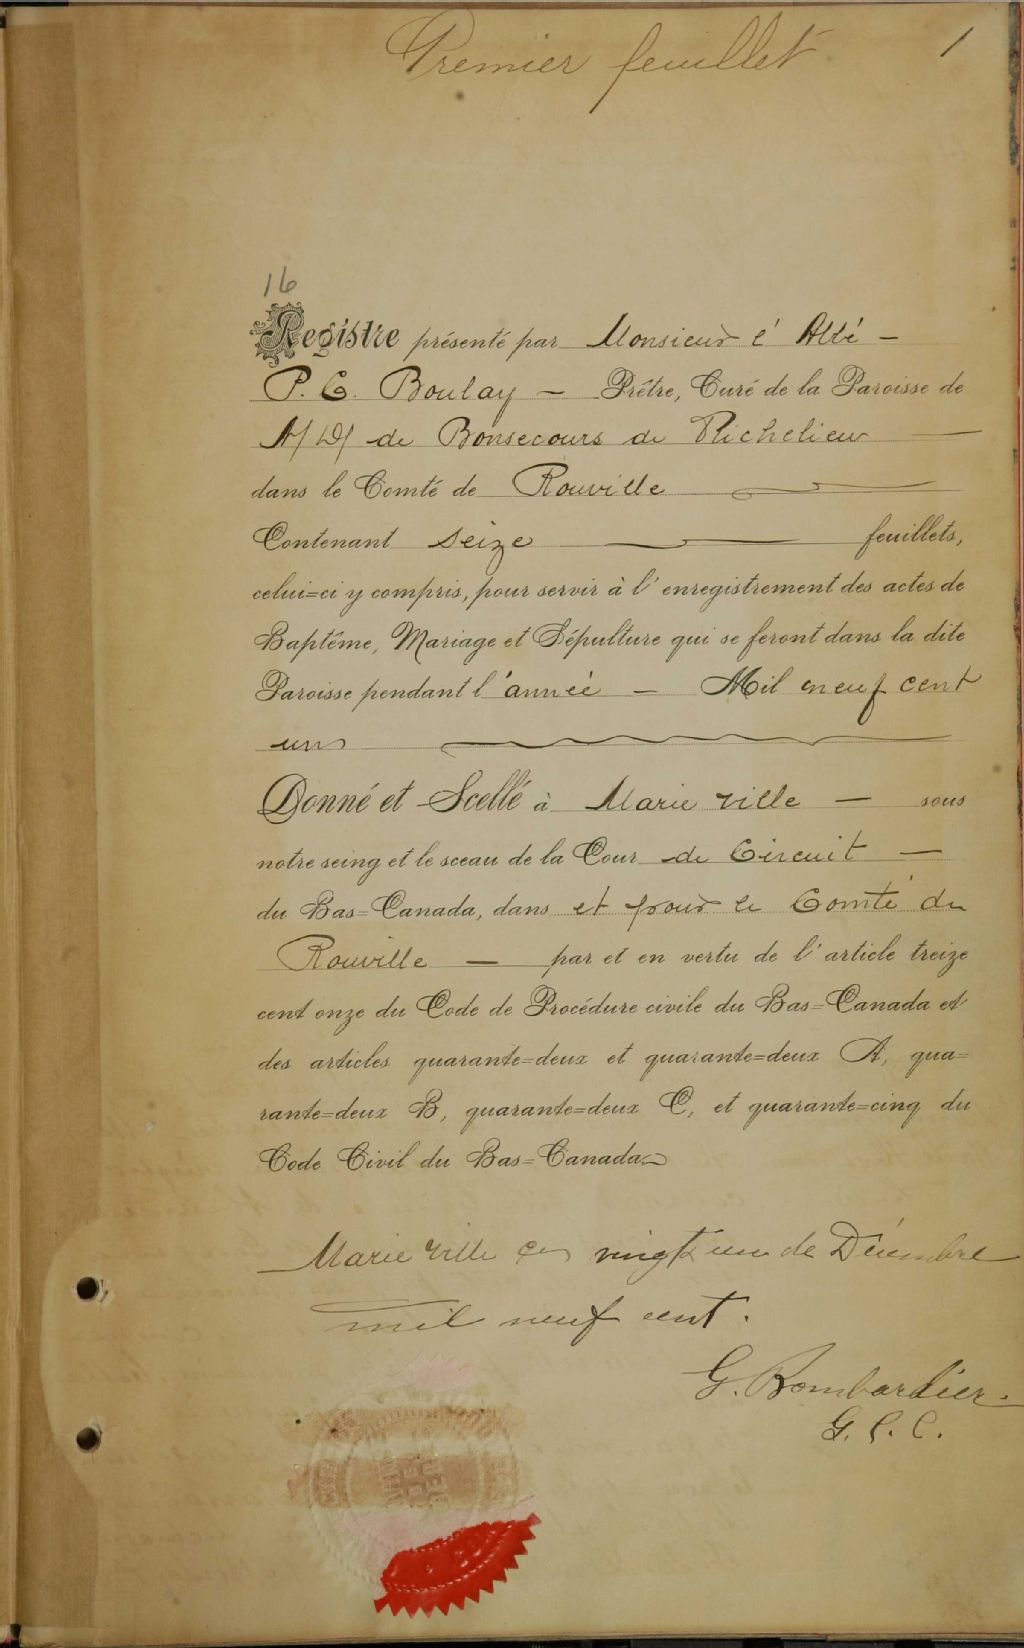 Premier feuillet
1
16
Registre présenté par Monsieur l'Abbé —
P. E. Boulay — Prêtre, Curé de la Paroisse de
N/D/ de Bonsecours de Richelieu
dans le Comté de Rouville
Contenant seize feuillets,
celui=ci y compris, pour servir à l'enregistrement des actes de
Baptême, Mariage et Sépulture qui se feront dans la dite
Paroisse pendant l'année — Mil neuf cent
un
Donné et Scellé à Marieville — sous
notre seing et le sceau de la Cour de Circuit —
du Bas=Canada, dans et pour le Comté de
Rouville — par et en vertu de l'article treize
cent onze du Code de Procédure civile du Bas=Canada et
des articles quarante=deux et quarante=deux A, qua=
rante=deux B, quarante=deux C, et quarante=cinq du
Code Civil du Bas=Canada.
Marieville ce vingt un de Décembre
mil neuf cent.
G. Bombardier.
G. C. C.